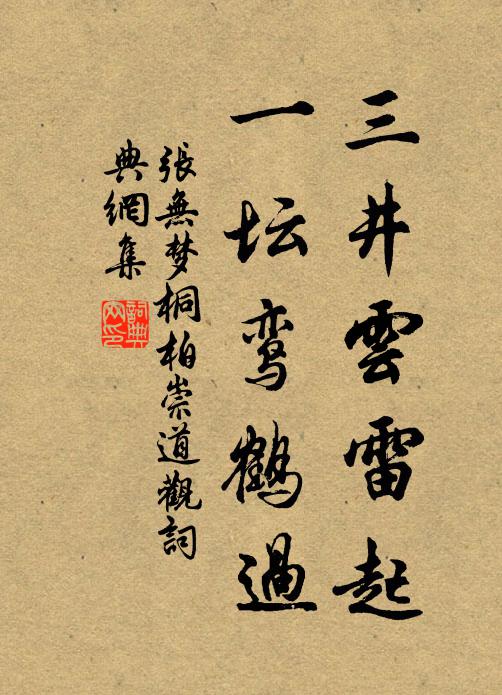 三井雲雷起
一坛鸾鶴過
張無梦桐柏崇道觀詞
典網集
詞典网印